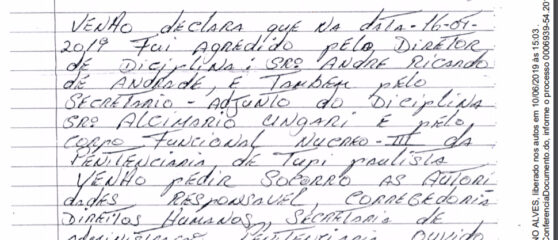 VENHO declara que NA data-16-01-
2019 Fui AgREDIDO pelo, DIRETOR
de DICIPLINA: SRº ANDRE RICARDO
de ANDRADE, E TAMBEM pelo
SECRETARIO-Adjunto do DICIPLINA
SRº ALCIMARIO UNGARI E pelo
CORPO FUNCIONAL NUCREO-III da
PENITENCIARIA, de TUPI paulista
VENHO pedir SOCORRO AS AUTORI
dades RESPONSAVEL, CORREGEDORIA
DIREITOS HUMANOS, SECRETARIA de
PENITENCIARIA OUVIDO
O ALVES, liberado nos autos em 10/06/2019 às 15:03.
ConferenciaDocumento.do, informe o processo 0006939-54.201